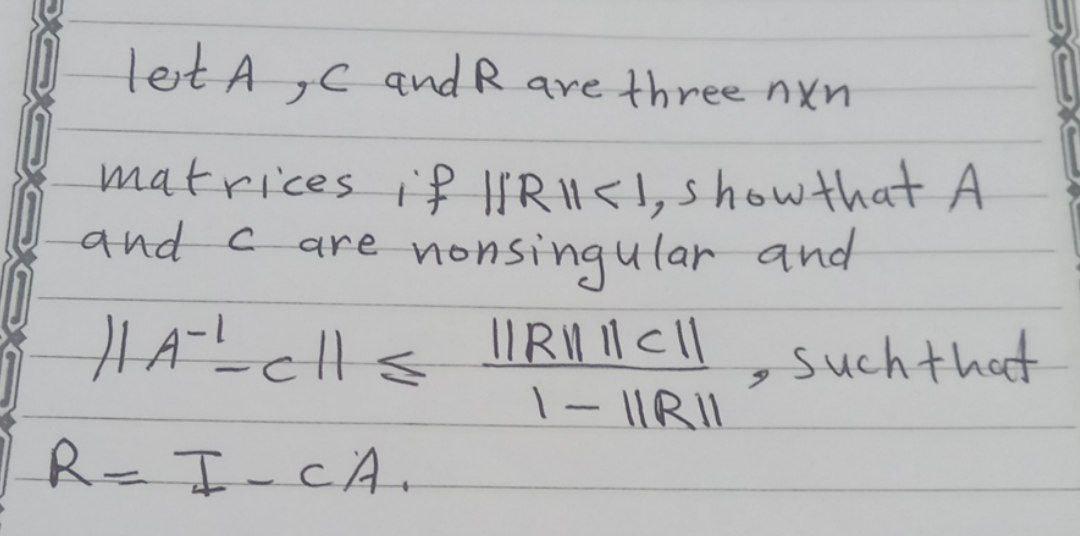 let A , C and R are three nxn
matrices if ||R||<1, show that A
and C are nonsingular and
||A⁻¹-C|| ≤ ||R|| ||C|| / 1 - ||R|| , such that
R = I - CA.